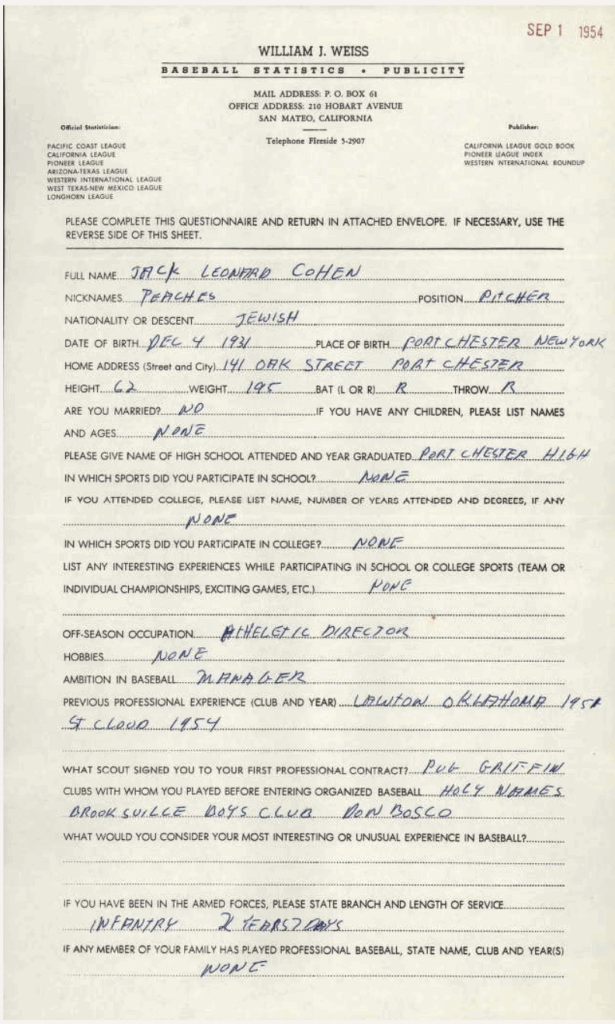 SEP 1 1954
WILLIAM J. WEISS
BASEBALL STATISTICS • PUBLICITY
MAIL ADDRESS: P. O. BOX 61
OFFICE ADDRESS: 210 HOBART AVENUE
SAN MATEO, CALIFORNIA
Telephone FIreside 5-2907
Official Statistician:
PACIFIC COAST LEAGUE
CALIFORNIA LEAGUE
PIONEER LEAGUE
ARIZONA-TEXAS LEAGUE
WESTERN INTERNATIONAL LEAGUE
WEST TEXAS-NEW MEXICO LEAGUE
LONGHORN LEAGUE
Publisher:
CALIFORNIA LEAGUE GOLD BOOK
PIONEER LEAGUE INDEX
WESTERN INTERNATIONAL ROUNDUP
PLEASE COMPLETE THIS QUESTIONNAIRE AND RETURN IN ATTACHED ENVELOPE. IF NECESSARY, USE THE
REVERSE SIDE OF THIS SHEET.
FULL NAME JACK LEONARD COHEN
NICKNAMES PEACHES POSITION PITCHER
NATIONALITY OR DESCENT JEWISH
DATE OF BIRTH DEC 4 1931 PLACE OF BIRTH PORT CHESTER NEW YORK
HOME ADDRESS (Street and City) 141 OAK STREET PORT CHESTER
HEIGHT 62 WEIGHT 195 BAT (L OR R) R THROW R
ARE YOU MARRIED? NO IF YOU HAVE ANY CHILDREN, PLEASE LIST NAMES
AND AGES NONE
PLEASE GIVE NAME OF HIGH SCHOOL ATTENDED AND YEAR GRADUATED PORT CHESTER HIGH
IN WHICH SPORTS DID YOU PARTICIPATE IN SCHOOL? NONE
IF YOU ATTENDED COLLEGE, PLEASE LIST NAME, NUMBER OF YEARS ATTENDED AND DEGREES, IF ANY
NONE
IN WHICH SPORTS DID YOU PARTICIPATE IN COLLEGE? NONE
LIST ANY INTERESTING EXPERIENCES WHILE PARTICIPATING IN SCHOOL OR COLLEGE SPORTS (TEAM OR
INDIVIDUAL CHAMPIONSHIPS, EXCITING GAMES, ETC.) NONE
OFF-SEASON OCCUPATION ATHELETIC DIRECTOR
HOBBIES NONE
AMBITION IN BASEBALL MANAGER
PREVIOUS PROFESSIONAL EXPERIENCE (CLUB AND YEAR) LAWTON OKLAHOMA
ST CLOUD 1954
WHAT SCOUT SIGNED YOU TO YOUR FIRST PROFESSIONAL CONTRACT? PUG GRIFFIN
CLUBS WITH WHOM YOU PLAYED BEFORE ENTERING ORGANIZED BASEBALL HOLY NAMES
BROOKSVILLE BOYS CLUB DON BOSCO
WHAT WOULD YOU CONSIDER YOUR MOST INTERESTING OR UNUSUAL EXPERIENCE IN BASEBALL?
IF YOU HAVE BEEN IN THE ARMED FORCES, PLEASE STATE BRANCH AND LENGTH OF SERVICE
INFANTRY 2 YEARS 7 DAYS
IF ANY MEMBER OF YOUR FAMILY HAS PLAYED PROFESSIONAL BASEBALL, STATE NAME, CLUB AND YEAR(S)
NONE